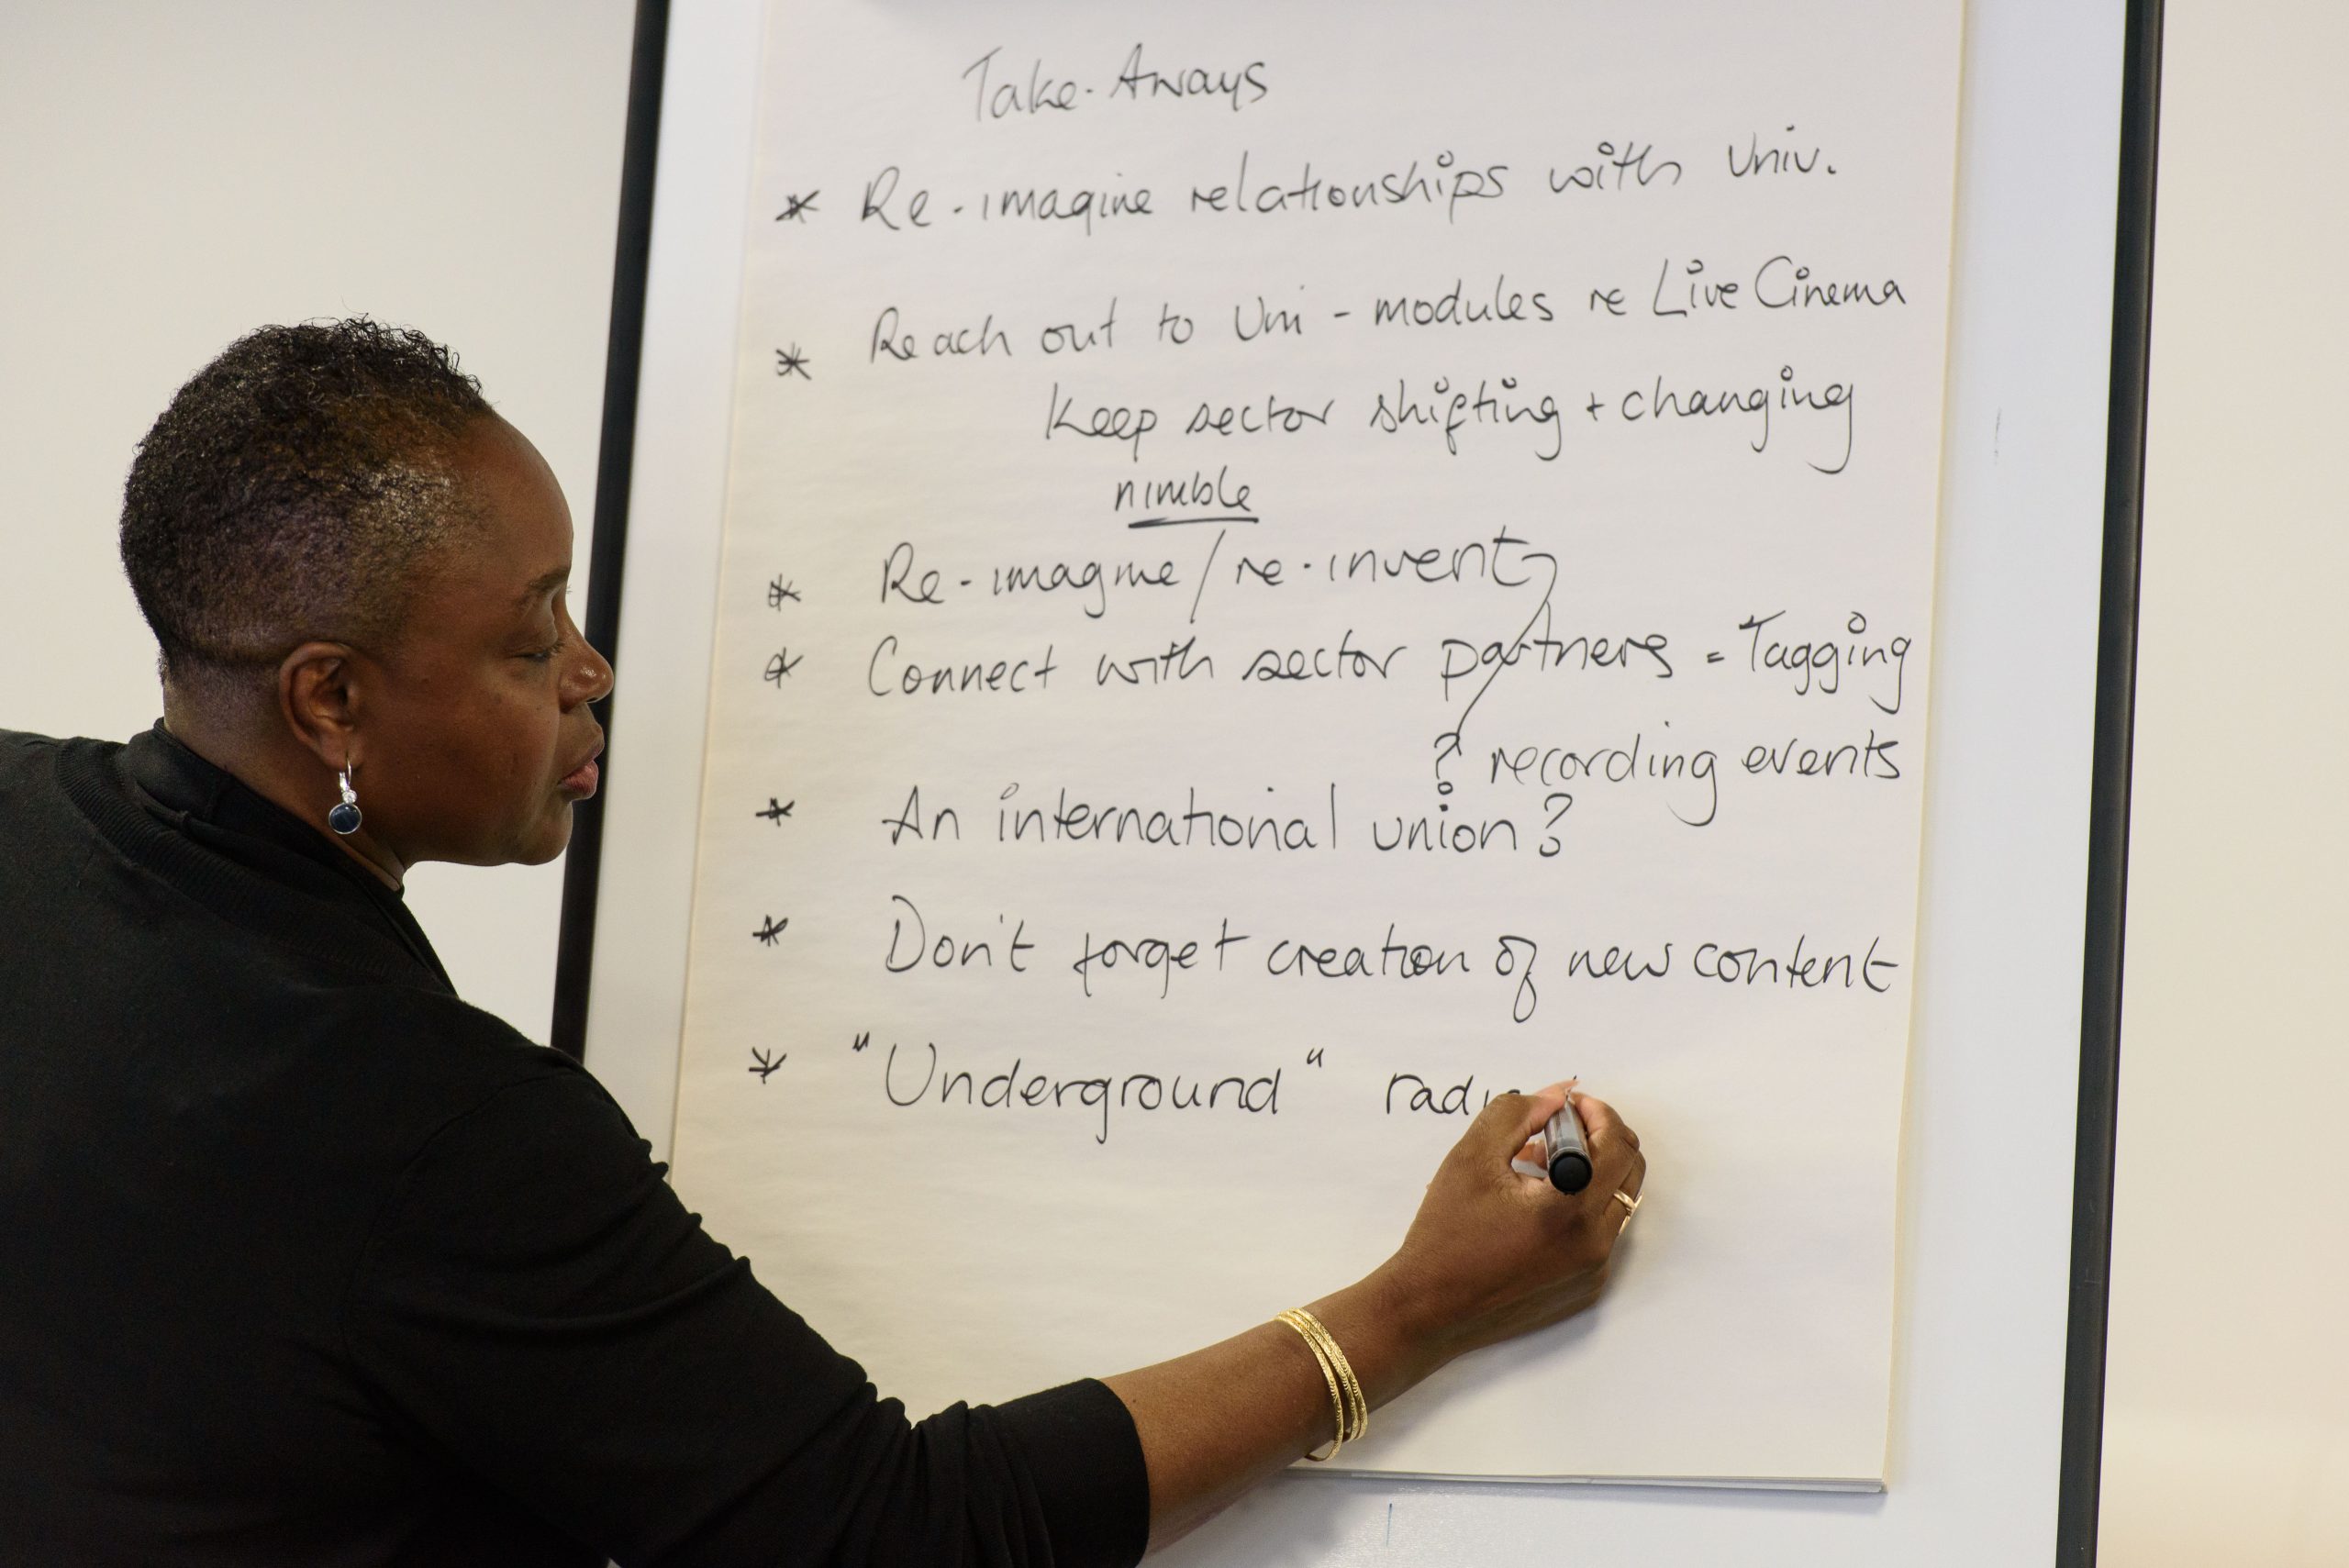 Take-Aways
* Re-imagine relationships with Univ.
* Reach out to Uni - modules re Live Cinema
Keep sector shifting + changing
nimble
* Re-imagine / re-invent
* Connect with sector partners = Tagging
? recording events
* An international union?
* Don't forget creation of new content
* "Underground"